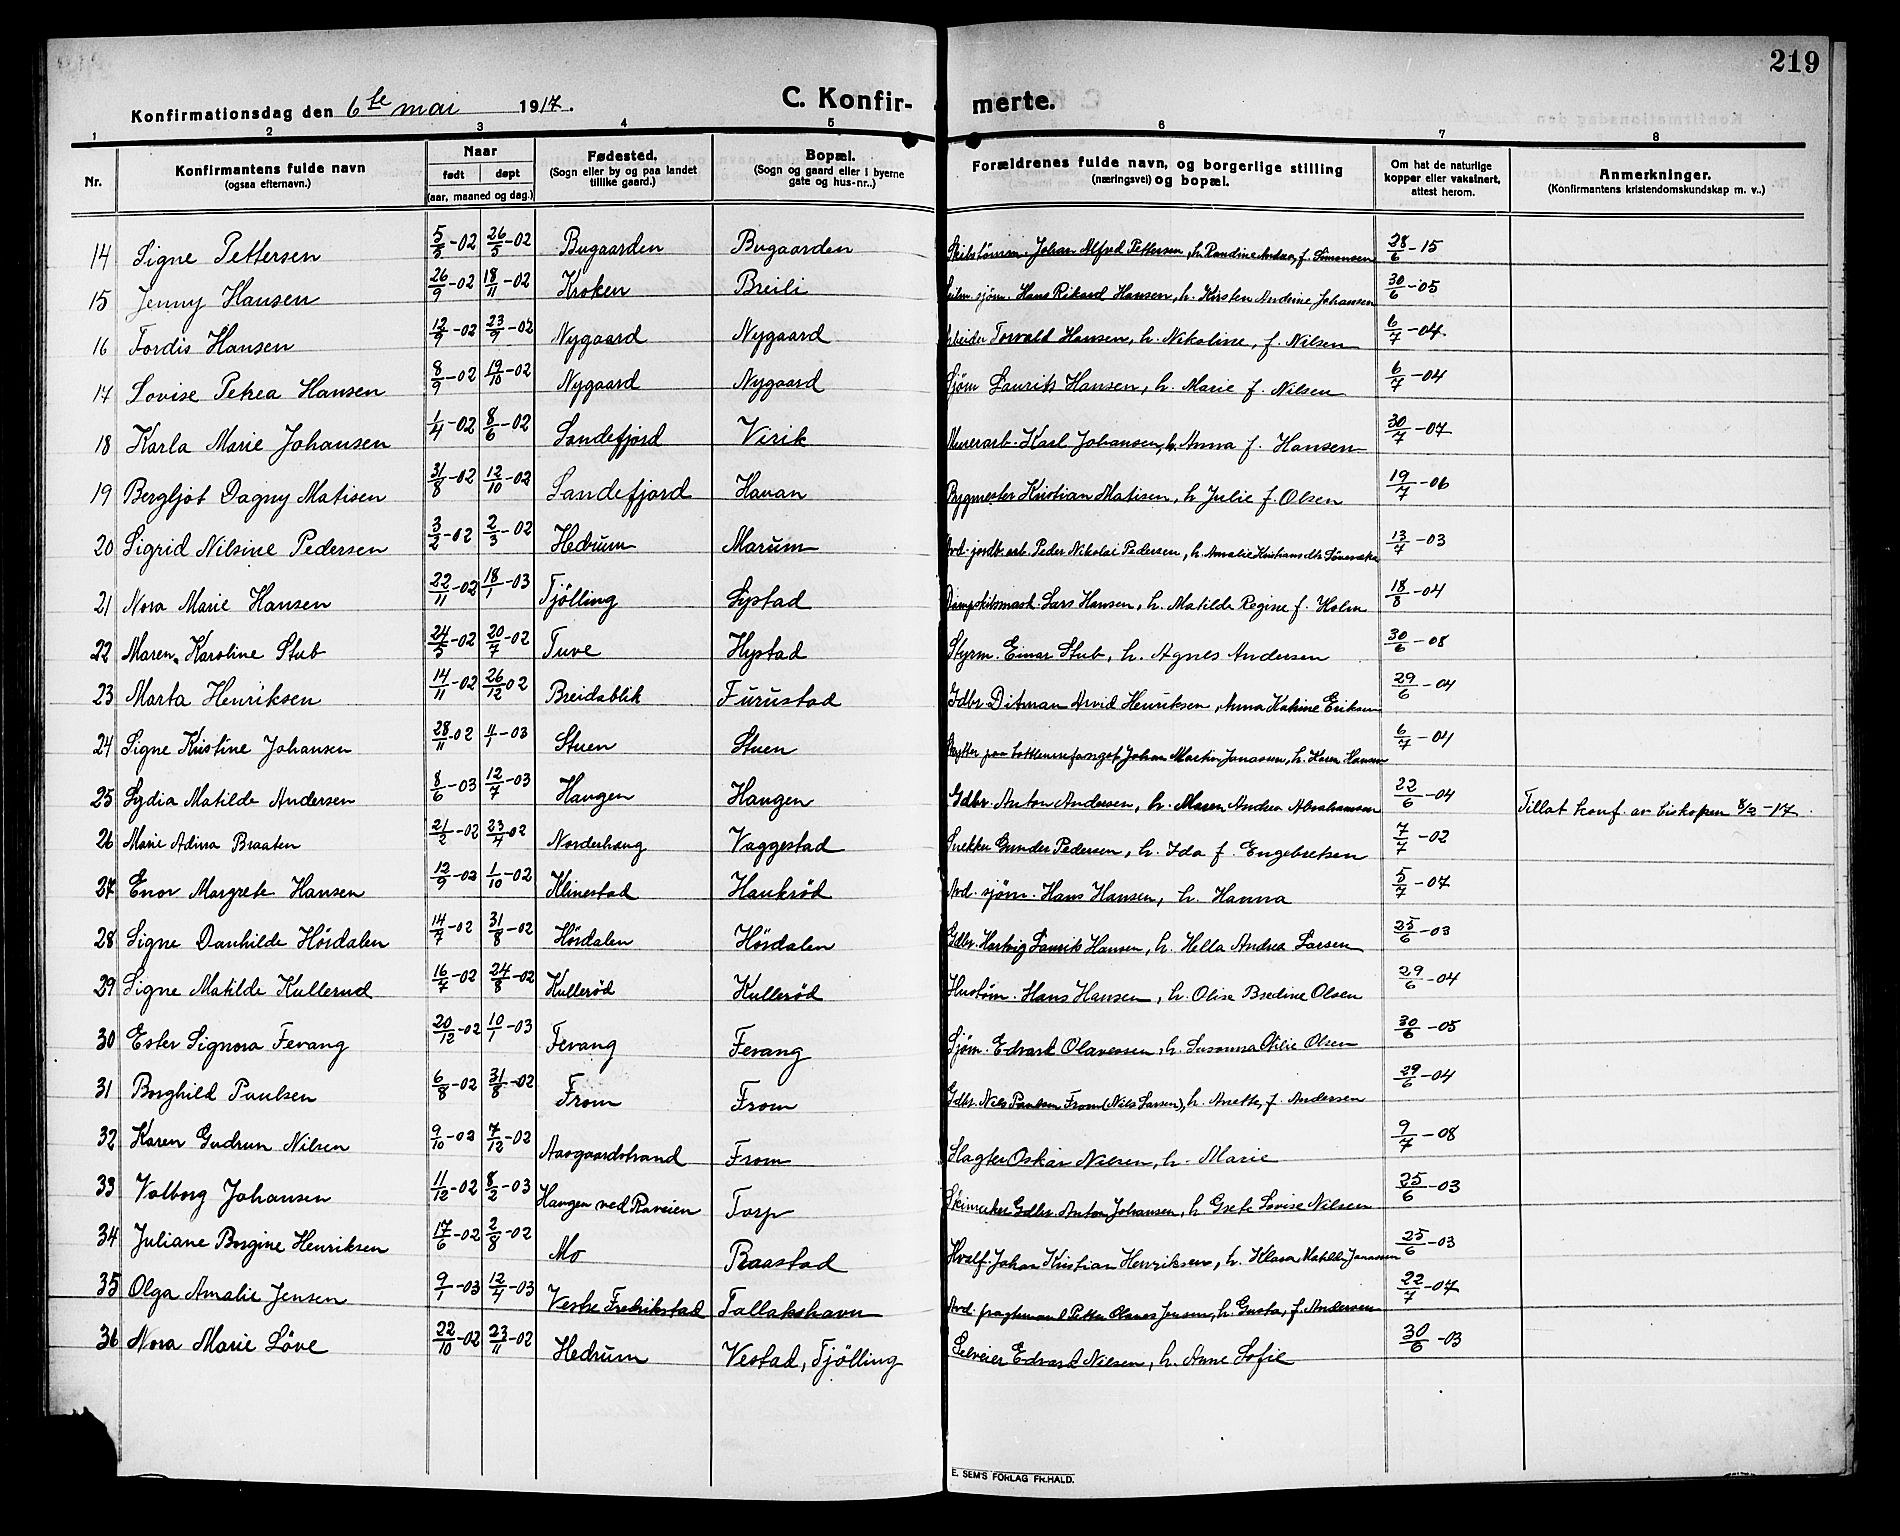 219
Konfirmationsdag den 6te mai 1917.
C. Konfirmerte.
1 2 3 4 5 6 7 8
Nr. | Konfirmantens fulde navn (ogsaa efternavn.) | Naar født døpt (aar, maaned og dag.) | Fødested. (Sogn eller by og paa landet tillike gaard.) | Bopæl. (Sogn og gaard eller i byerne gate og hus-nr..) | Forældrenes fulde navn, og borgerlige stilling (næringsvei) og bopæl. | Om hat de naturlige kopper eller vaksinert, attest herom. | Anmerkninger. (Konfirmantens kristendomskundskap m. v..)
14 Signe Pettersen 5/3-02 26/5-02 Bugaarden Bugaarden Johan Alfred Pettersen, h. Randine Andrea, f. Simensen 28/6-15
15 Jenny Hansen 26/9-02 18/11-02 Kroken Breili sjøm. Hans Rikard Hansen, h. Kirsten Andrine Johansen 30/6-05
16 Fordis Hansen 12/9-02 23/9-02 Nygaard Nygaard Arbeider Torvald Hansen, h. Nikoline, f. Nilsen 6/7-04
17 Lovise Petrea Hansen 8/9-02 19/10-02 Nygaard Nygaard Sjøm Laurits Hansen, h. Marie f. Nilsen 6/7-04
18 Karla Marie Johansen 1/4-02 8/6-02 Sandefjord Virik Murerarb. Karl Johansen, h. Anna f. Hansen 30/7-07
19 Bergljot Dagny Matisen 31/8-02 12/10-02 Sandefjord Havan Bygmester Kristian Matisen, h. Julie f. Olsen 19/7-06
20 Sigrid Nilsine Pedersen 3/2-02 2/3-02 Hedrum Marum Avd. jordb.arb. Peder Nikolai Pedersen, h. Amalie 13/7-03
21 Nora Marie Hansen 22/11-02 18/1-03 Tjölling Lystad Lars Hansen, h. Matilde Regine f. Holm 18/8-04
22 Maren Karoline Stub 24/5-02 20/7-02 Tuve Hystad Styrm. Einar Stub, h. Agnes Andersen 30/6-08
23 Marta Henriksen 14/11-02 26/12 02 Breidablik Furustad Gdbr Ditman Arvid Henriksen, Anna Katrine Eriksen 29/6-04
24 Signe Kristine Johansen 28/11-02 4/1-03 Stuen Stuen Skytter paa bottlenosefanget Johan Martin Janassen, h. Karen Hansen 6/7-04
25 Lydia Matilde Andersen 8/6-03 12/7-03 Haugen Haugen Gdbr. Anton Andersen, h. Maren Andrea Abrahamsen 22/6-04 Tillat konf. av biskopen 8/2-17.
26 Marie Adina Braaten 21/2-02 23/4 02 Norderhaug Vaggestad Snekker Gunder Pedersen, h. Ida f. Engebretsen 7/7-02
27 Enor Margrete Hansen 12/9-02 1/10-02 Klinestad Haukröd Avd. sjøm. Hans Hansen, h. Hanna 5/7-07
28 Signe Danhilde Hösdalen 14/7-02 31/8-02 Hösdalen Hösdalen Gdbr. Hartvig Laurits Hansen, h. Hella Andrea Larsen 25/6-03
29 Signe Matilde Kullerud 16/7-02 24/8-02 Kulleröd Kulleröd Hustøm. Hans Hansen, h. Olise Bredine Olsen 29/6-04
30 Ester Signora Fevang 20/12-02 10/1-03 Fevang Fevang Sjøm. Edvard Olavessen, h. Susanna Otilie Olsen 30/6-05
31 Borghild Paulsen 6/8-02 31/8-02 From From Gdbr. Nils Paulsen From (Nils Larsen), h. Anette, f. Andersen 29/6-04
32 Karen Gudrun Nilsen 9/10-02 7/12-02 Aasgaardstrand From Slagter Oskar Nilsen, h. Marie 9/7-08
33 Valborg Johansen 11/12-02 8/2-03 Haugen ved Raveien Torp Gdbr. Anton Johansen, h. Grete Lovise Nilsen 25/6-03
34 Juliane Borgine Henriksen 17/6-02 2/8-02 Mo Raastad Hvalf. Johan Kristian Henriksen, h. Klara Matilde Janassen 25/6-03
35 Olga Amalie Jensen 9/1-03 12/4-03 Vestre Fredrikstad Tallakshavn Avd. fragtemand Petter Olaves Jensen, h. Gusta, f. Andersen 22/7-07
36 Nora Marie Löve 22/10-02 23/11-02 Hedrum Vestad, Tjölling Selveier Edvard Nilsen, h. Anne Sofie 30/6-03
E. SEM'S FORLAG FR.HALD.